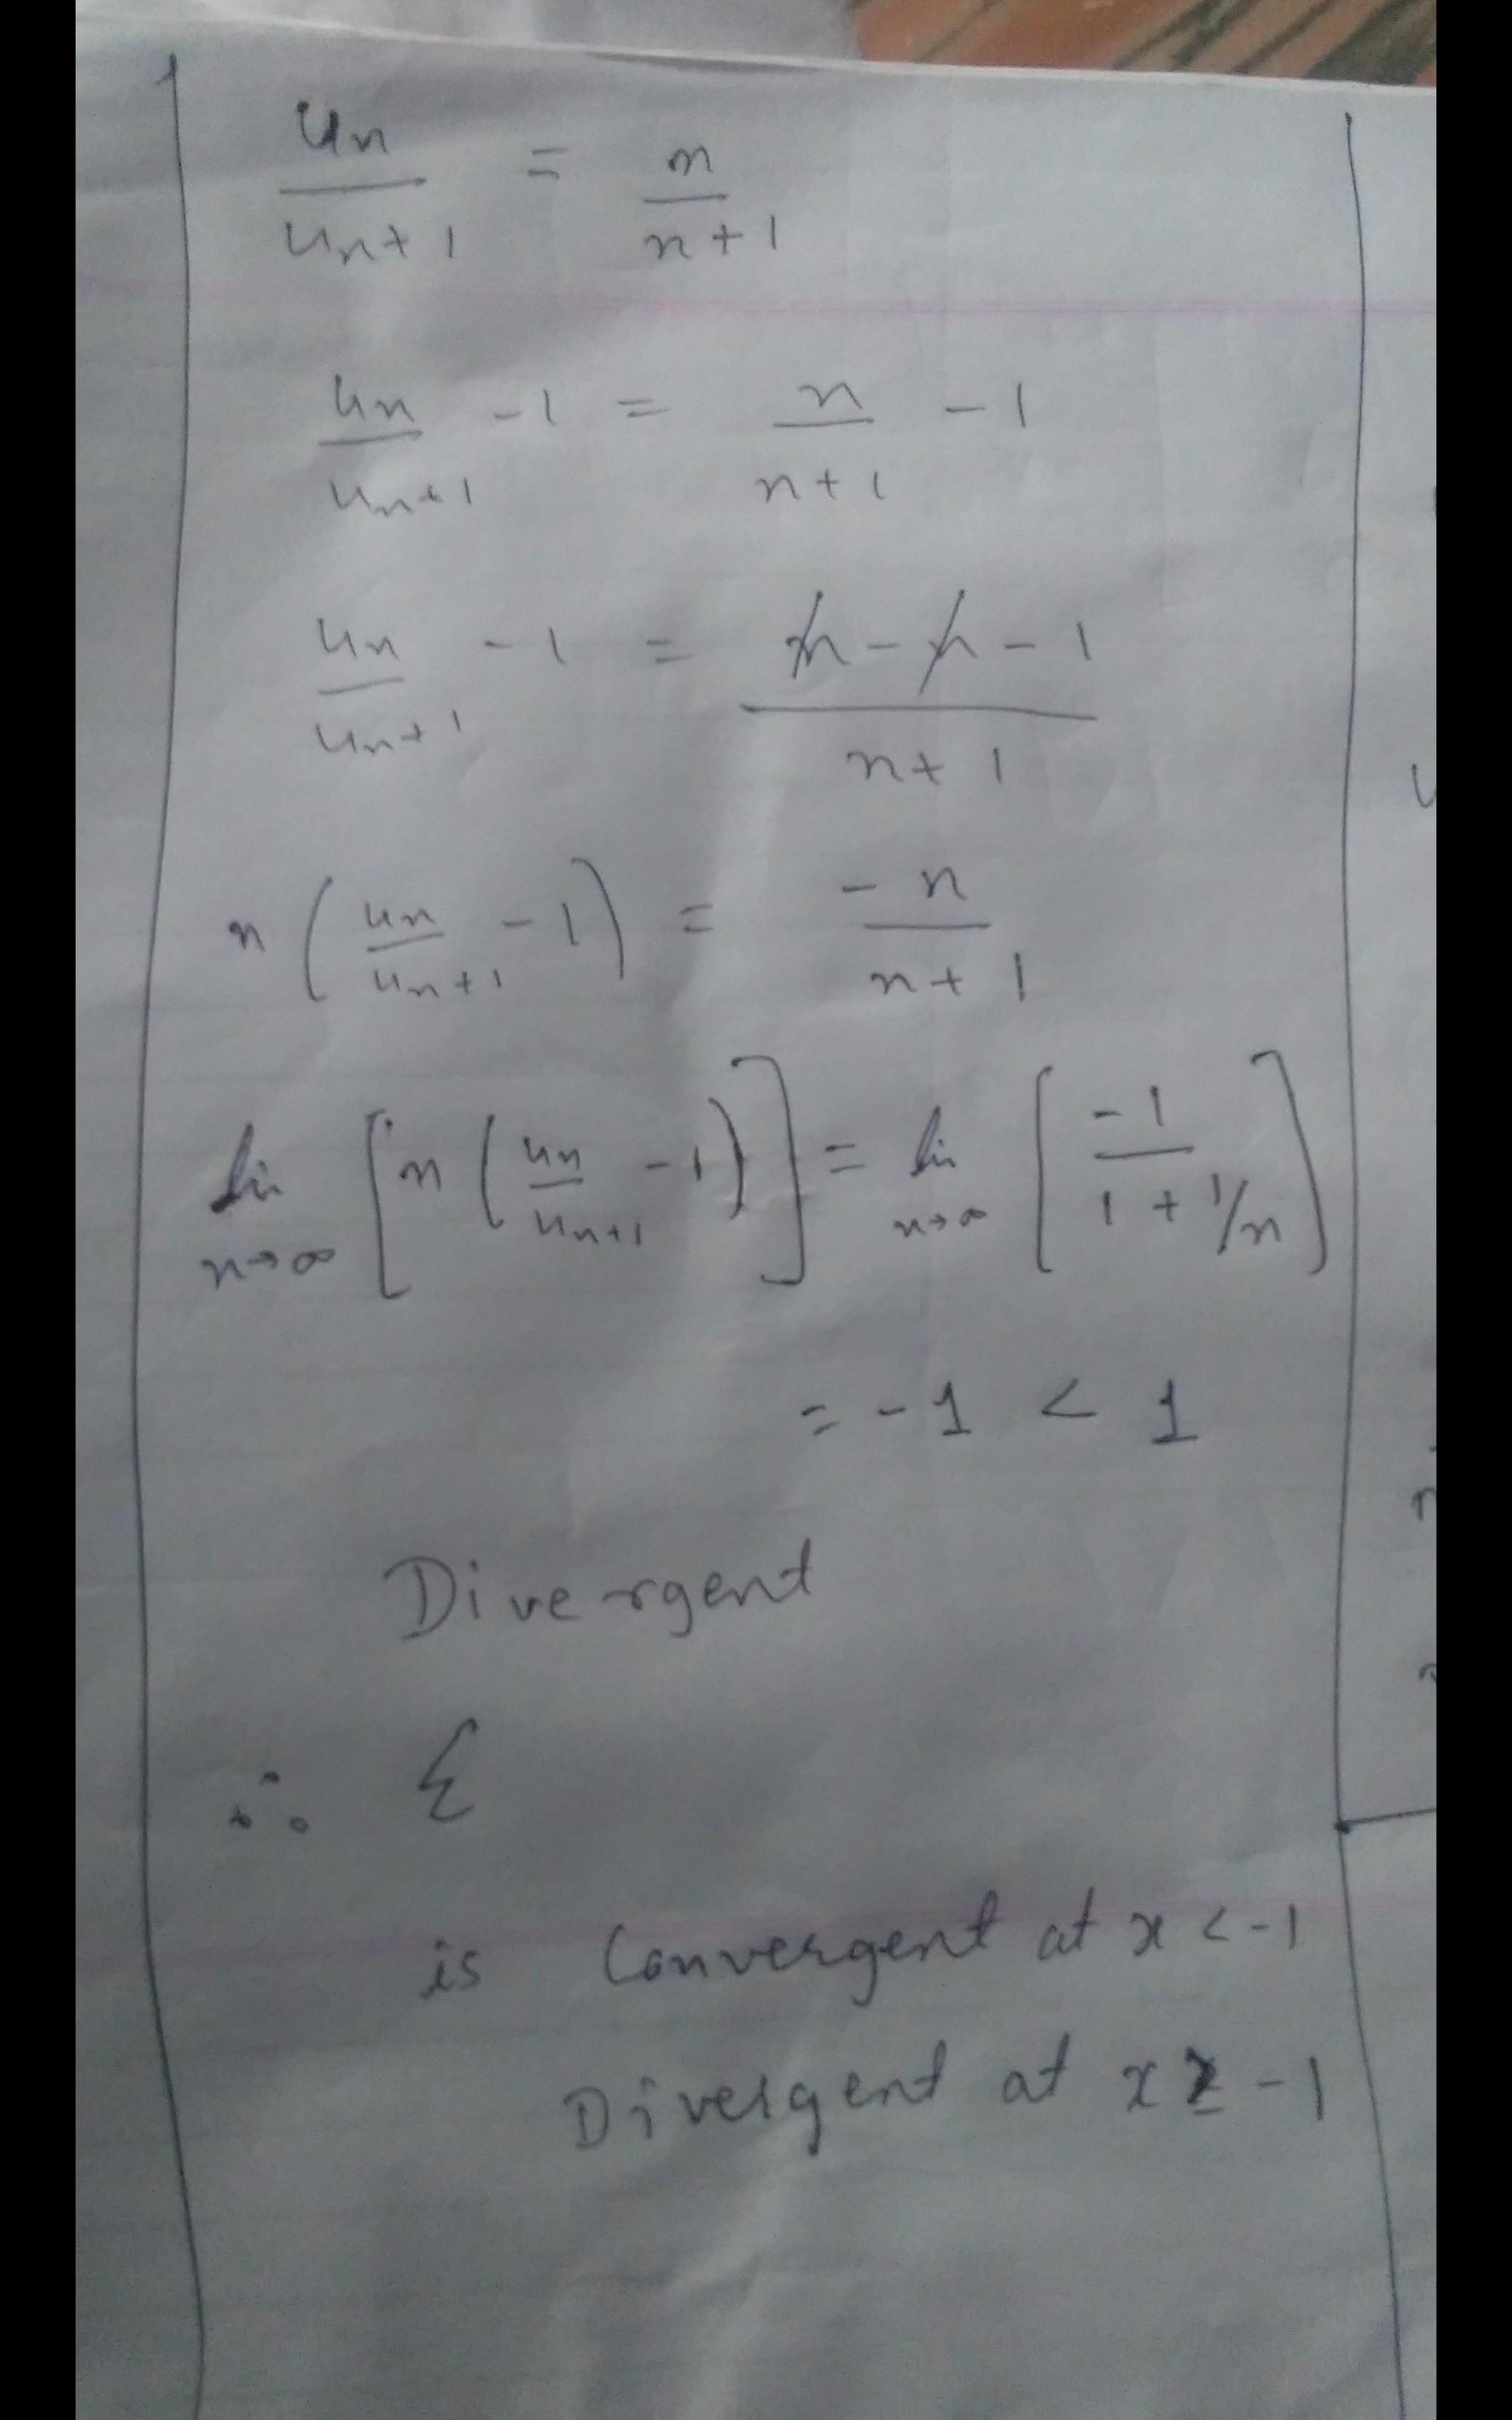 un/un+1 = n/n+1
un/un+1 -1 = n/n+1 -1
un/un+1 -1 = n-n-1/n+1
n(un/un+1 -1) = -n/n+1
lim n→∞ [n(un/un+1 -1)] = lim n→∞ [-1/1+1/n]
= -1 < 1
Divergent
∴ Σ
is Convergent at x < -1
Divergent at x ≥ -1